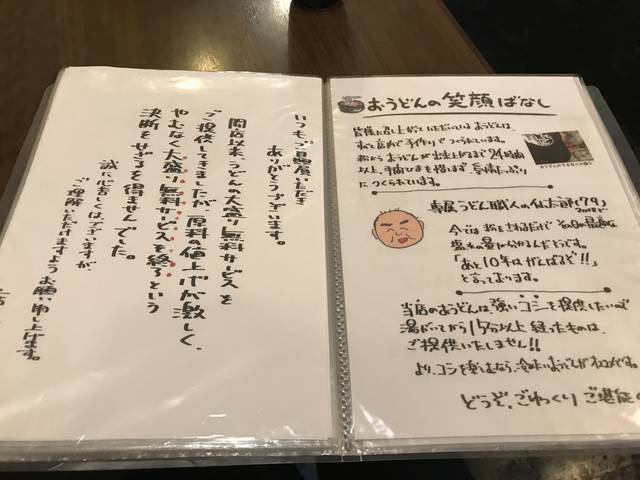 いつもご愛顧いただき
ありがとうございます。
開店以来、うどんの大盛り無料サービスを
ご提供してきましたが、原料の値上げが激しく、
やむなく大盛り無料サービスを終るという
決断をせざるを得ませんでした。
誠に心苦しくはございますが、
ご理解いただけますようお願い申し上げます。
おうどんの笑顔ばなし
皆様に召し上がっていただいているおうどんは、
店内で手作りでつくられています。
粉からおうどんが出来上がるまで24時間
以上、手間ひまを惜しまず、愛情たっぷり
につくられています。
専属うどん職人の
(79)
今では粉を
だけで その日の最適な
塩水の量が分かるんだそうです。
「あと10年はがんばるぞ!!」
と言っております。
当店のおうどんは、強いコシを提供したいので
湯がいてから15分以上経ったものは、
ご提供いたしません!!
より、コシを楽しむなら、冷めたいおうどんがオススメです。
どうぞ、ごゆっくり ご堪能